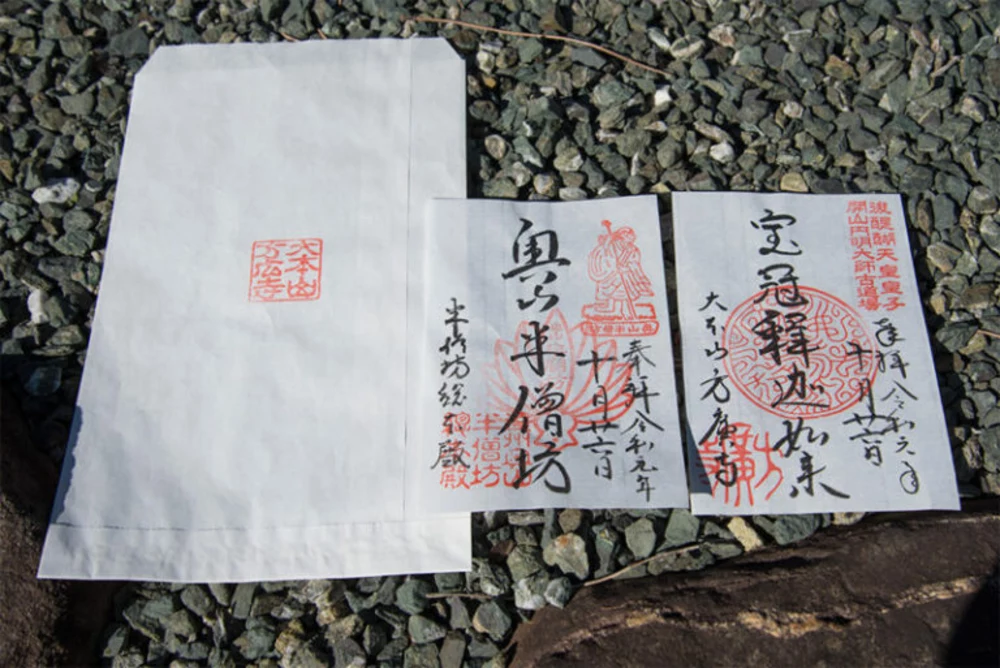 大本山
方広寺
奉拝 令和元年
十月廿六日
奥山半僧坊
半僧坊総本殿
半僧坊
後醍醐天皇皇子
開山円明大師古道場
奉拝 令和元年
十月廿六日
宝冠釋迦如来
大本山方廣寺